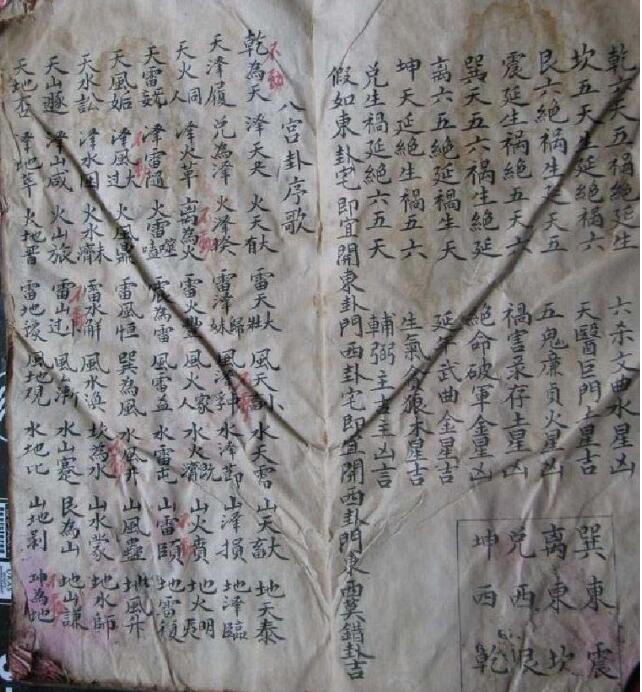 乾六天五禍絶延生 六杀文曲水星凶
坎五天生延絶禍六 天醫巨門土星吉
艮六絶禍生延天五 五鬼廉貞火星凶
震延生禍絶五天六 禍害录存土星凶
巽天五六禍生絶延 絶命破軍金星凶
离六五絶延禍生天 延年武曲金星吉
坤天延絶生禍五六 生氣貪狼木星吉
兌生禍延絶六五天 輔弼主吉主凶
假如東卦宅即宜開東卦門西卦宅即宜開西卦門東西莫錯卦吉
巽東震
离東坎
兌西艮
坤西乾
八宫卦序歌
乾為天 澤天夬 火天大有 雷天大壯 風天小畜 水天需 山天大畜 地天泰
天澤履 兌為澤 火澤睽 雷澤歸妹 風澤中孚 水澤節 山澤損 地澤臨
天火同人 澤火革 离為火 雷火豊 風火家人 水火既濟 山火賁 地火明夷
天雷无妄 澤雷隨 火雷噬嗑 震為雷 風雷益 水雷屯 山雷頤 地雷復
天風姤 澤風大过 火風鼎 雷風恒 巽為風 水風井 山風蠱 地風升
天水訟 澤水困 火水未濟 雷水解 風水渙 坎為水 山水蒙 地水師
天山遯 澤山咸 火山旅 雷山小过 風山漸 水山蹇 艮為山 地山謙
天地否 澤地萃 火地晋 雷地豫 風地観 水地比 山地剥 坤為地
不動